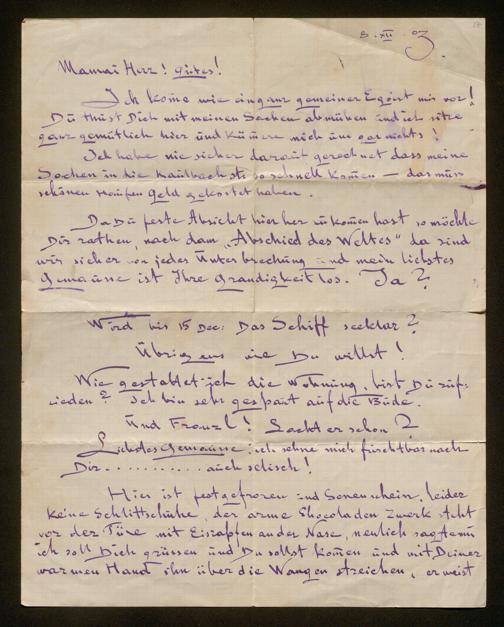 8. XII. 03
Mamai Herz! Gutes!
Ich kome wie ein ganz gemeiner Egoist mir vor!
Du thust Dich mit meinen Sachen abmühen und ich sitze
ganz gemütlich hier und küm̄ere mich um gar nichts!
Ich habe nie sicher darauf gerechnet dass meine
Sachen in die Kaulbachstr. so schnell komen — das muss
schönen Haufen Geld gekostet haben.
Da Du feste Absicht hier her zu komen hast so möchte
Dir rathen, nach dam „Abschied des Weltes" da sind
wir sicher von jedes Unterbrechung und mein liebstes
ist Ihre Grandigkeit los. Ja?
Wird bis 15 Dec: Das Schiff seeklar?
Übrigens wie Du willst!
Wie gestaltet sich die Wohnung, bist Du zuf-
ieden? Ich bin sehr gespart auf die Bude.
Und Franzl! Sackt er schon?
Liebstes : ich sehne mich früchtbar nach
Dir.......... auch selisch!
Hier ist festgefroren und Sonenschein, leider
keine Schlittschuhe, der arme Shocoladen Zwerk steht
vor der Türe mit Eiszapfen an der Nase, neulich sagte mir
ich soll Dich grüssen und Du sollst komen und mit Deiner
warmen Hand ihn über die Wangen streichen, er weist